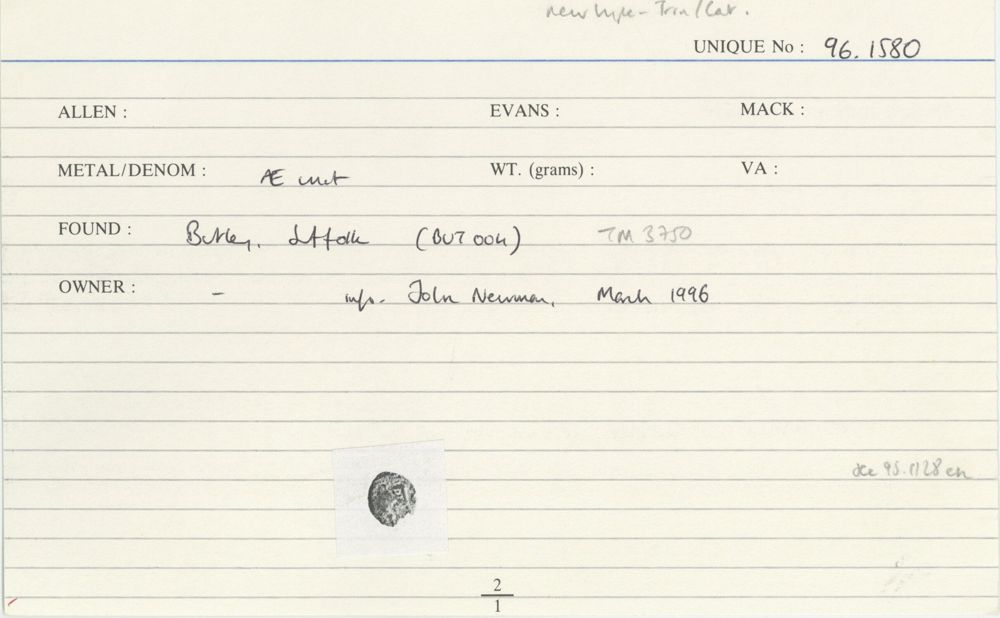 new type - Trin/Cat.
UNIQUE No : 96.1580
ALLEN : EVANS : MACK :
METAL/DENOM : Æ unit WT. (grams) : VA :
FOUND : Butley, Suffolk (BUT 004) TM 3750
OWNER : - info. John Newman, March 1996
95.1128
2
1